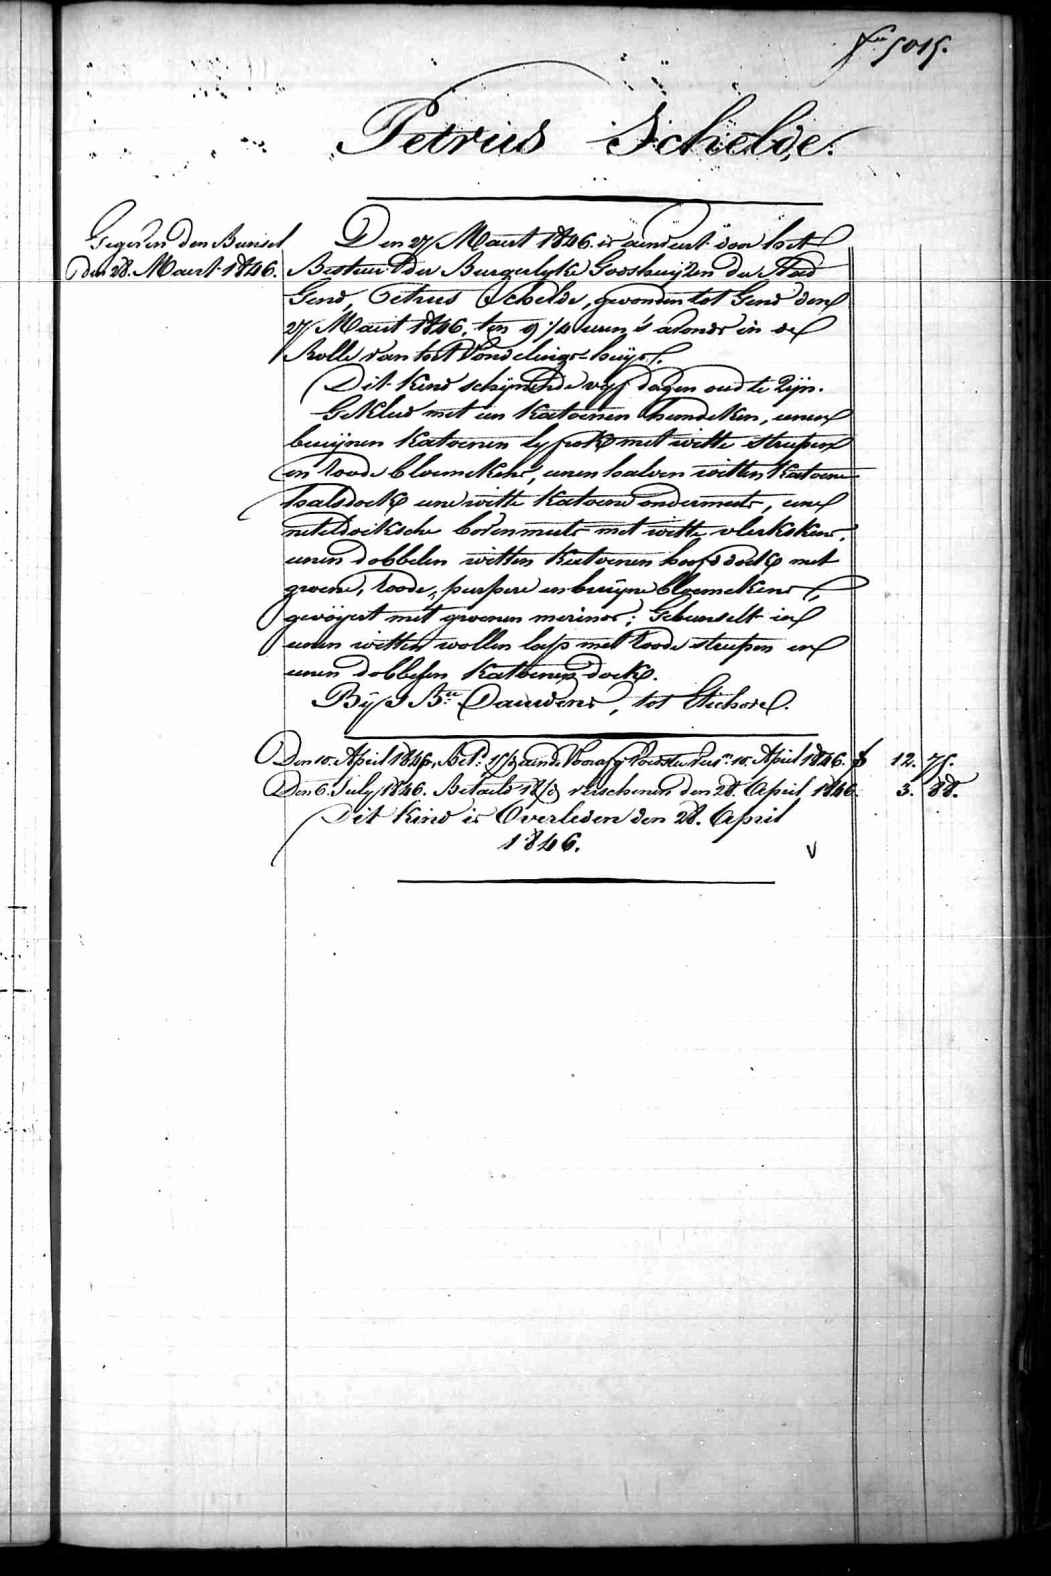 5015.
Petrus Schelde.
Gegeven den Bunsel
den 28. Maert 1846.
Den 27 Maert 1846. is aenveert door het
Bestuer der Burgerlyke Godshuijzen der Stad
Gend, Petrus Schelde, gevonden tot Gend den
27 Maert 1846, ten 9 1/4 uren 's avonds in de
Rolle van het Vondelings huijs.
Dit kind schijnende vyf dagen oud te zijn.
Gekleed met een katoenen hemdeken, eenen
bruijnen katoenen lyfrok met witte streepen
en roode bloemekens, eenen halven witten katoene
halsdoek, eene witte katoene ondermuts, eene
neteldoeksche bovenmuts met witte vlekskens,
eenen dobbelen witten katoenen hoofddoek met
groene, roode, purpere en bruijne bloemekens,
gevoijert met groenen merinos; Gebunselt in
eenen witten wollen lap met roode streepen en
eenen dobbelen katoenen doek.
Bij J. Bte Dauwens, tot Eechove.
Den 10. April 1846. 10. April 1846. f 12. 75.
Den 6. July 1846. Betaeld 18/ verschenen den 28. April 1846. 3. 88.
Dit kind is Overleden den 28. April
1846. V